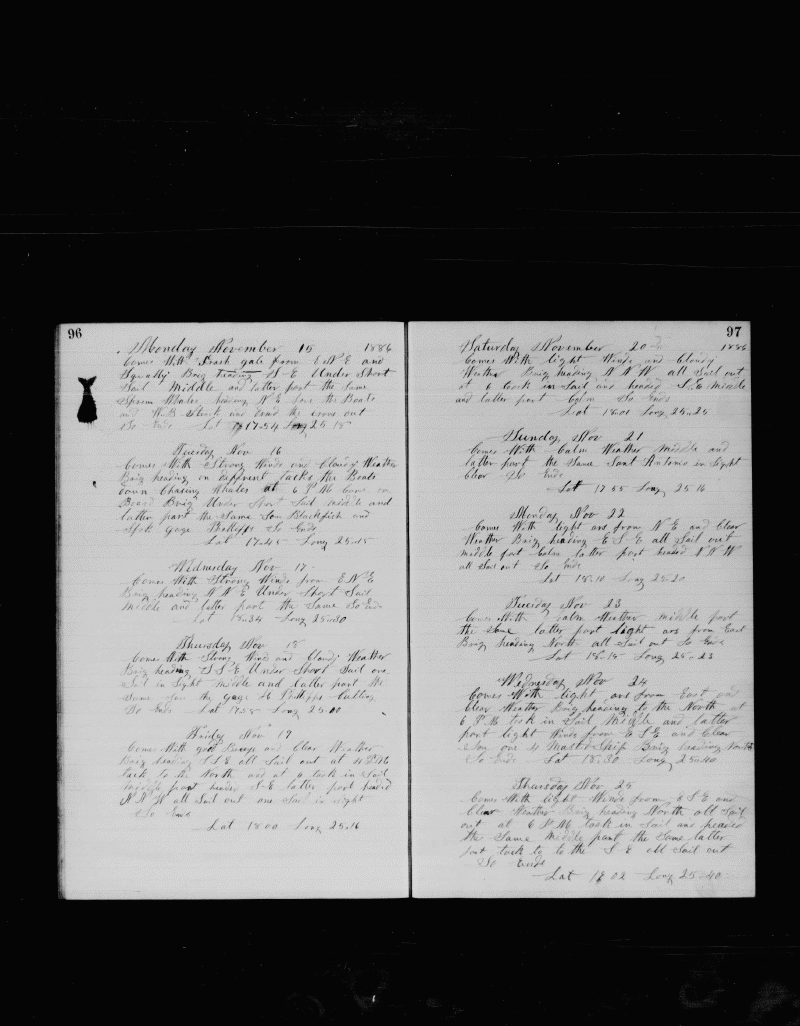 96
Monday November 15 1886
Comes With Fresh gale from E N E and
Squally Brig heading S-E Under Short
Sail Middle and latter part the Same
Sperm Whales heading N E the Boats
and W B Struck and the irons out
So Ends Lat 17-54 Long 25 15
Tuesday Nov 16
Comes With Strong Winds and Cloudy Weather
Brig heading on different tacks the Boats
down Chasing Whales at 6 P M Came on
Board Brig Under Short Sail middle and
latter part the Same Saw Blackfish and
Spok gage So Ends
Lat 17-45 Long 25-15
Wednesday Nov 17
Comes With Strong Winds from E N E
Brig heading N N E Under Short Sail
Middle and latter part the Same So Ends
Lat 18-34 Long 25-30
Thursday Nov 18
Comes With Strong Wind and Cloudy Weather
Brig heading S S E Under Short Sail one
Sail in Sight middle and latter part the
Same the gage Cutting
So Ends Lat Long 25-00
Friday Nov 19
Comes With good Breeze and Clear Weather
Brig heading S S E all Sail out at 4 P M
tack to the North and at 6 took in Sail
middle part headed S-E latter part headed
N N W all Sail out one Sail in sight
So Ends
Lat 18 00 Long 25-16
97
Saturday November 20 1886
Comes With light Winds and Cloudy
Weather Brig heading N N W all Sail out
at 6 took in Sail and headed S E Middle
and latter part Calm So Ends
Lat 18-01 Long 25-25
Sunday Nov 21
Comes With Calm Weather Middle and
latter part the Same Sant Antonio in Sight
Clear So Ends
Lat 17 55 Long 25 16
Monday Nov 22
Comes With light ars from N E and Clear
Weather Brig heading E S E all Sail out
middle part Calm latter part headed N N W
all Sail out So Ends
Lat 18-10 Long 25-20
Tuesday Nov 23
Comes With Calm Weather middle part
the Same latter part light ars from East
Brig heading North all Sail out So Ends
Lat 18-15 Long 25-23
Wednesday Nov 24
Comes With light ars from East and
Clear Weather Brig heading to the North at
6 P M took in Sail Middle and latter
part light Winds from E S E and Clear
Saw one 4 Mast Ship Brig heading North
So Ends Lat 18-30 Long 25-40
Thursday Nov 25
Comes With light Winds from E S E and
Clear Weather Brig heading North all Sail
out at 6 P M took in Sail and headed
the Same Middle part the Same latter
part tack to the S E all Sail out
So Ends
Lat 18 02 Long 25-40